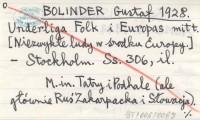 BOLINDER Gustaf 1928.
Underliga Folk i Europas mitt.
[Niezwykłe ludy w środku Europy.]
- Stockholm. Ss. 306, il.
M.in. Tatry i Podhale (ale
głównie Ruś Zakarpacka i Słowacja).